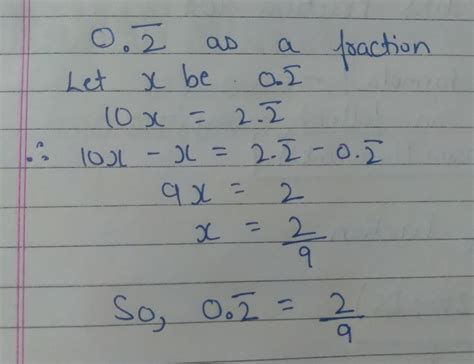 0.2̅ as a fraction
Let x be 0.2̅
10x = 2.2̅
∴ 10x - x = 2.2̅ - 0.2̅
9x = 2
x = 2/9
So, 0.2̅ = 2/9